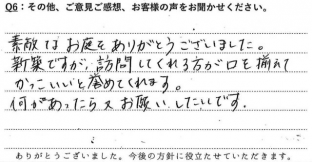 Q6：その他、ご意見ご感想、お客様の声をお聞かせください。
素敵なお庭をありがとうございました。
新築ですが、訪問してくれる方が口を揃えて
かっこいいと誉めてくれます。
何があったら又お願いしたいです。
ありがとうございました。今後の方針に役立たせていただきます。